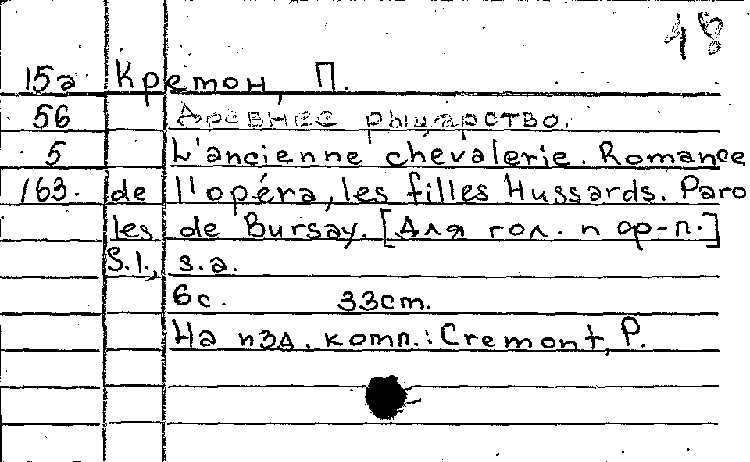 48
15а Кремон, П.
56 Древнее рыцарство.
5 L'ancienne chevalerie. Romance
163. de l'opéra, les filles Hussards. Paro
les de Bursay. [Для гол. и ф-п.]
S.l., s.a.
6с. 33cm.
На изд. комп.: Cremont, P.